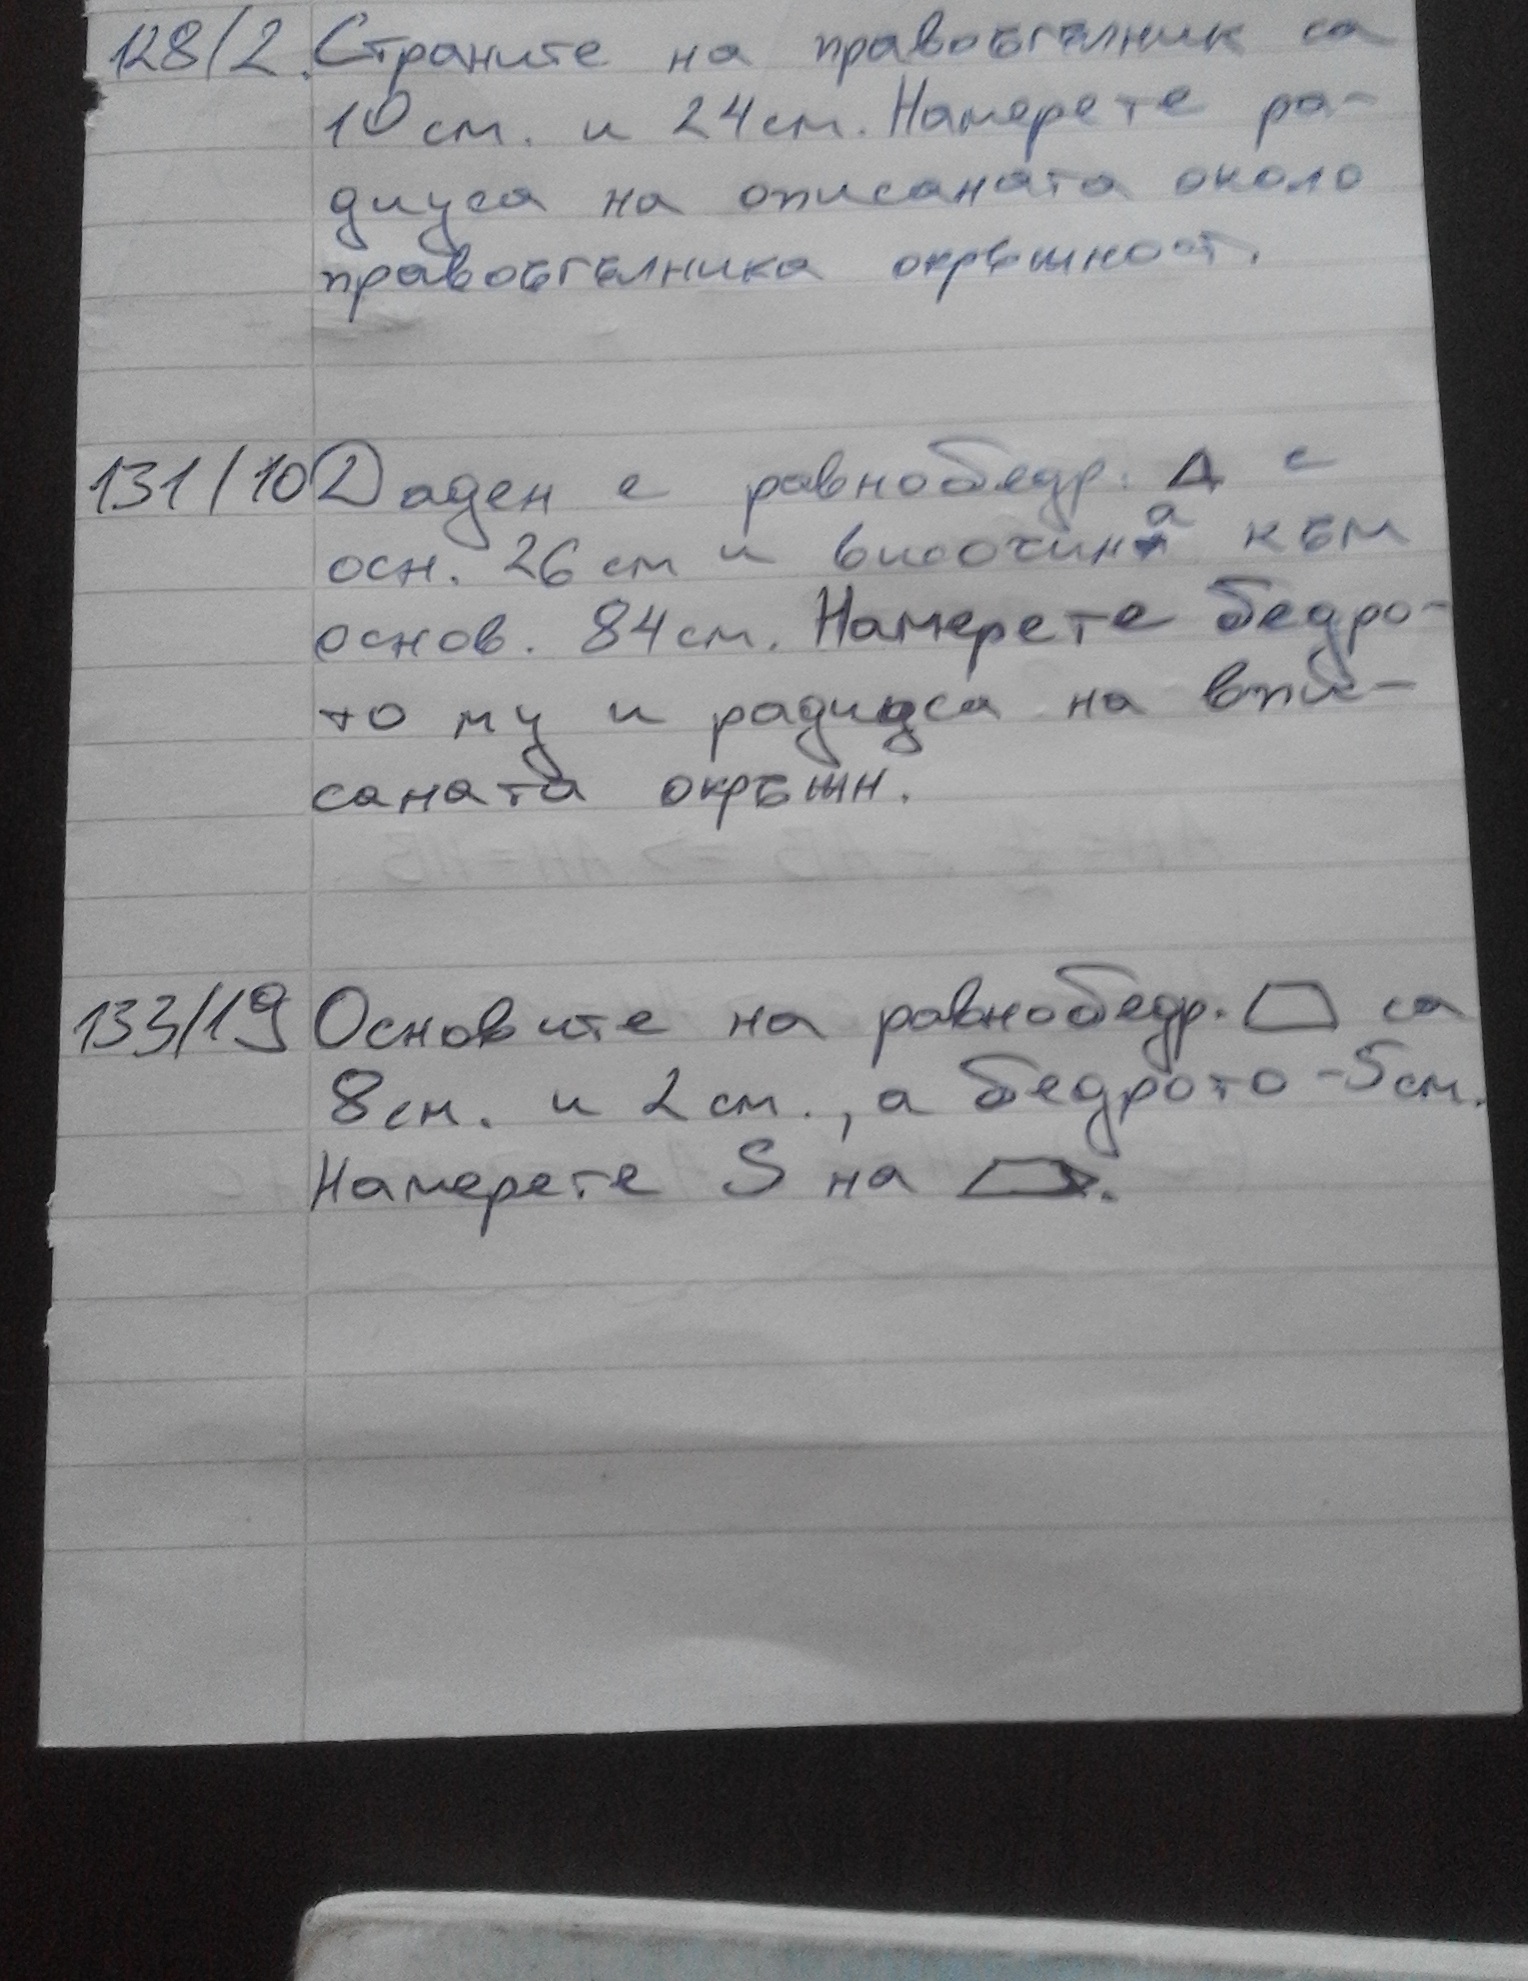 128/2. Страните на правоъгълник са
10 см. и 24 см. Намерете ра-
диуса на описаната около
правоъгълника окръжност.
131/10 Даден е равнобедр. Δ с
осн. 26 см и височина към
основ. 84 см. Намерете бедро-
то му и радиуса на впи-
саната окръжн.
133/19 Основите на равнобедр. са
8 см. и 2 см., а бедрото - 5 см.
Намерете S на .